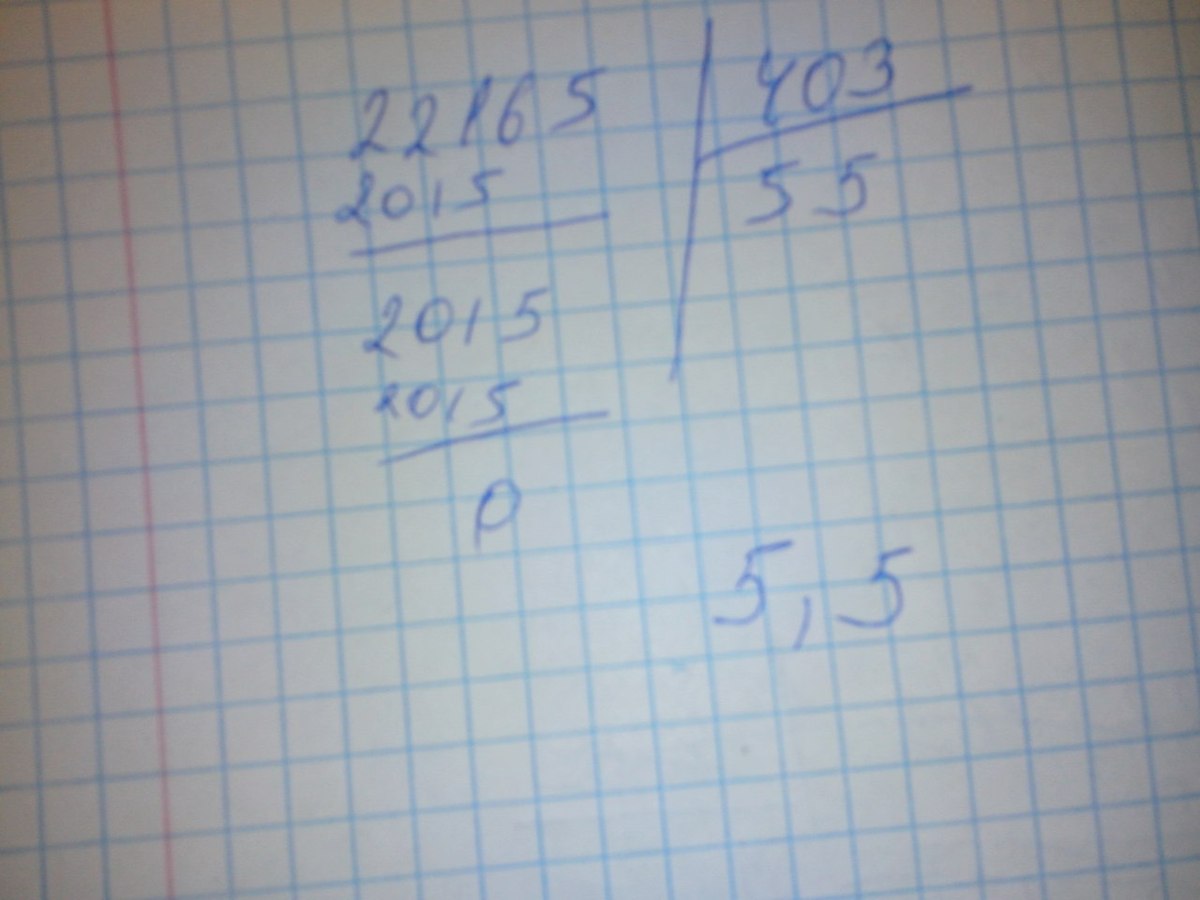 22165 403
2015 55
2015
2015
0
5,5